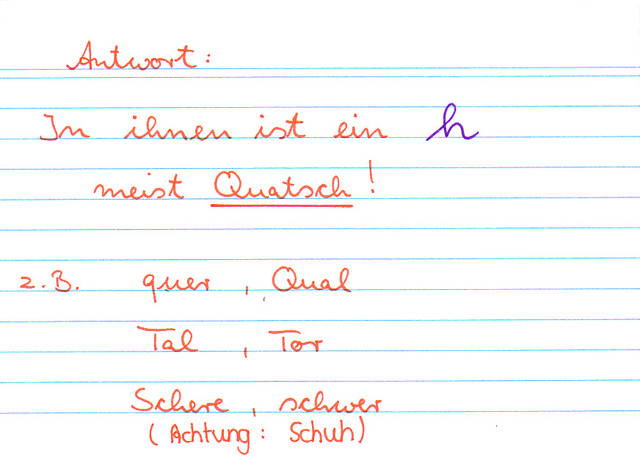 Antwort:
In ihnen ist ein h
meist Quatsch!
z.B. quer, Qual
Tal, Tor
Schere, schwer
(Achtung: Schuh)